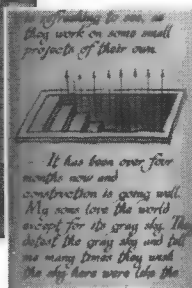 is refreshing to see, as
they work on some small
projects of their own.
- It has been over four
months now and
construction is going well.
My sons love the world
except for its gray sky. They
detest the gray sky and tell
me many times they wish
the sky here were like the